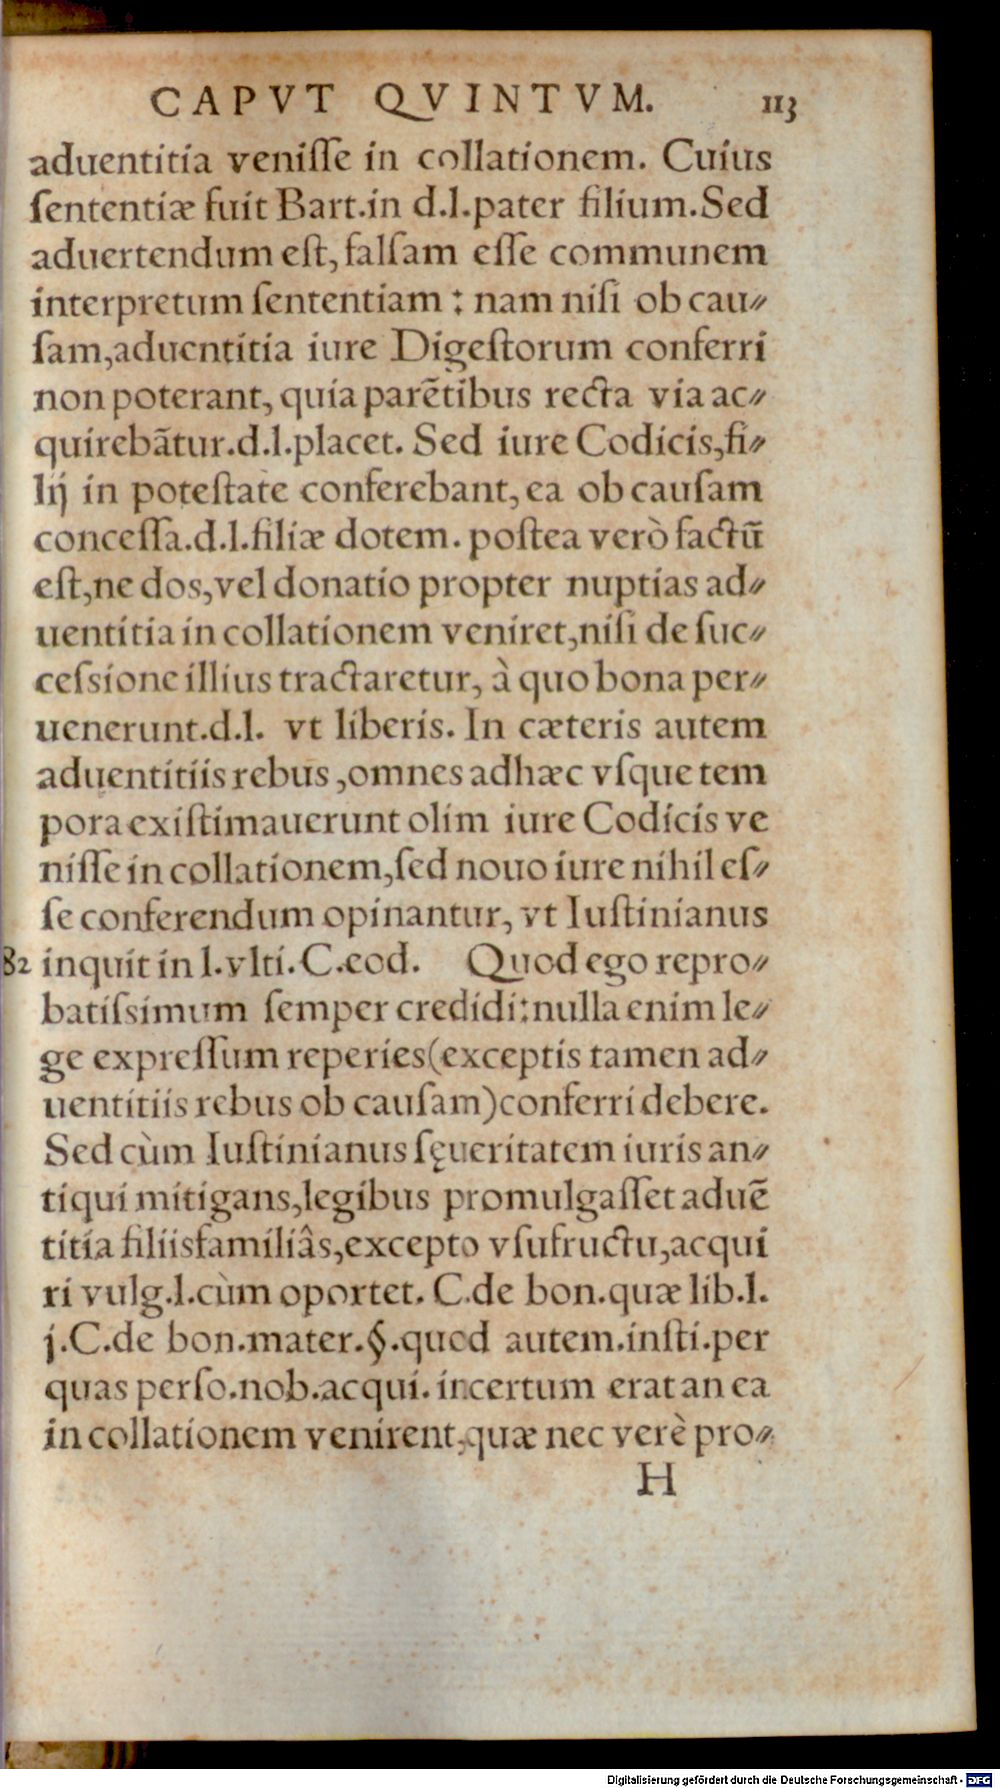 CAPVT QVINTVM. 113
aduentitia veniſſe in collationem. Cuius
ſententiæ fuit Bart.in d.l.pater filium.Sed
aduertendum eſt, falſam eſſe communem
interpretum ſententiam : nam niſi ob cau⸗
ſam,aduentitia iure Digeſtorum conferri
non poterant, quia parẽtibus recta via ac⸗
quirebãtur.d.l.placet. Sed iure Codicis,fi⸗
lij in poteſtate conferebant, ea ob cauſam
conceſſa.d.l.filiæ dotem. poſtea verò factũ
eſt,ne dos,vel donatio propter nuptias ad⸗
uentitia in collationem veniret,niſi de ſuc⸗
ceſsione illius tractaretur, à quo bona per⸗
uenerunt.d.l. vt liberis. In cæteris autem
aduentitiis rebus ,omnes adhæc vſque tem
pora exiſtimauerunt olim iure Codicis ve
niſſe in collationem,ſed nouo iure nihil eſ⸗
ſe conferendum opinantur, vt Iuſtinianus
82 inquit in l.vlti.C.eod. Quod ego repro⸗
batiſsimum ſemper credidi:nulla enim le⸗
ge expreſſum reperies(exceptis tamen ad⸗
uentitiis rebus ob cauſam)conferri debere.
Sed cùm Iuſtinianus ſęueritatem iuris an⸗
tiqui mitigans,legibus promulgaſſet aduẽ
titia filiisfamiliâs,excepto vſufructu,acqui
ri vulg.l.cùm oportet. C.de bon.quæ lib.l.
j.C.de bon.mater.§.quod autem.inſti.per
quas perſo.nob.acqui. incertum erat an ea
in collationem venirent,quæ nec verè pro⸗
H
Digitalisierung gefördert durch die Deutsche Forschungsgemeinschaft - DFG